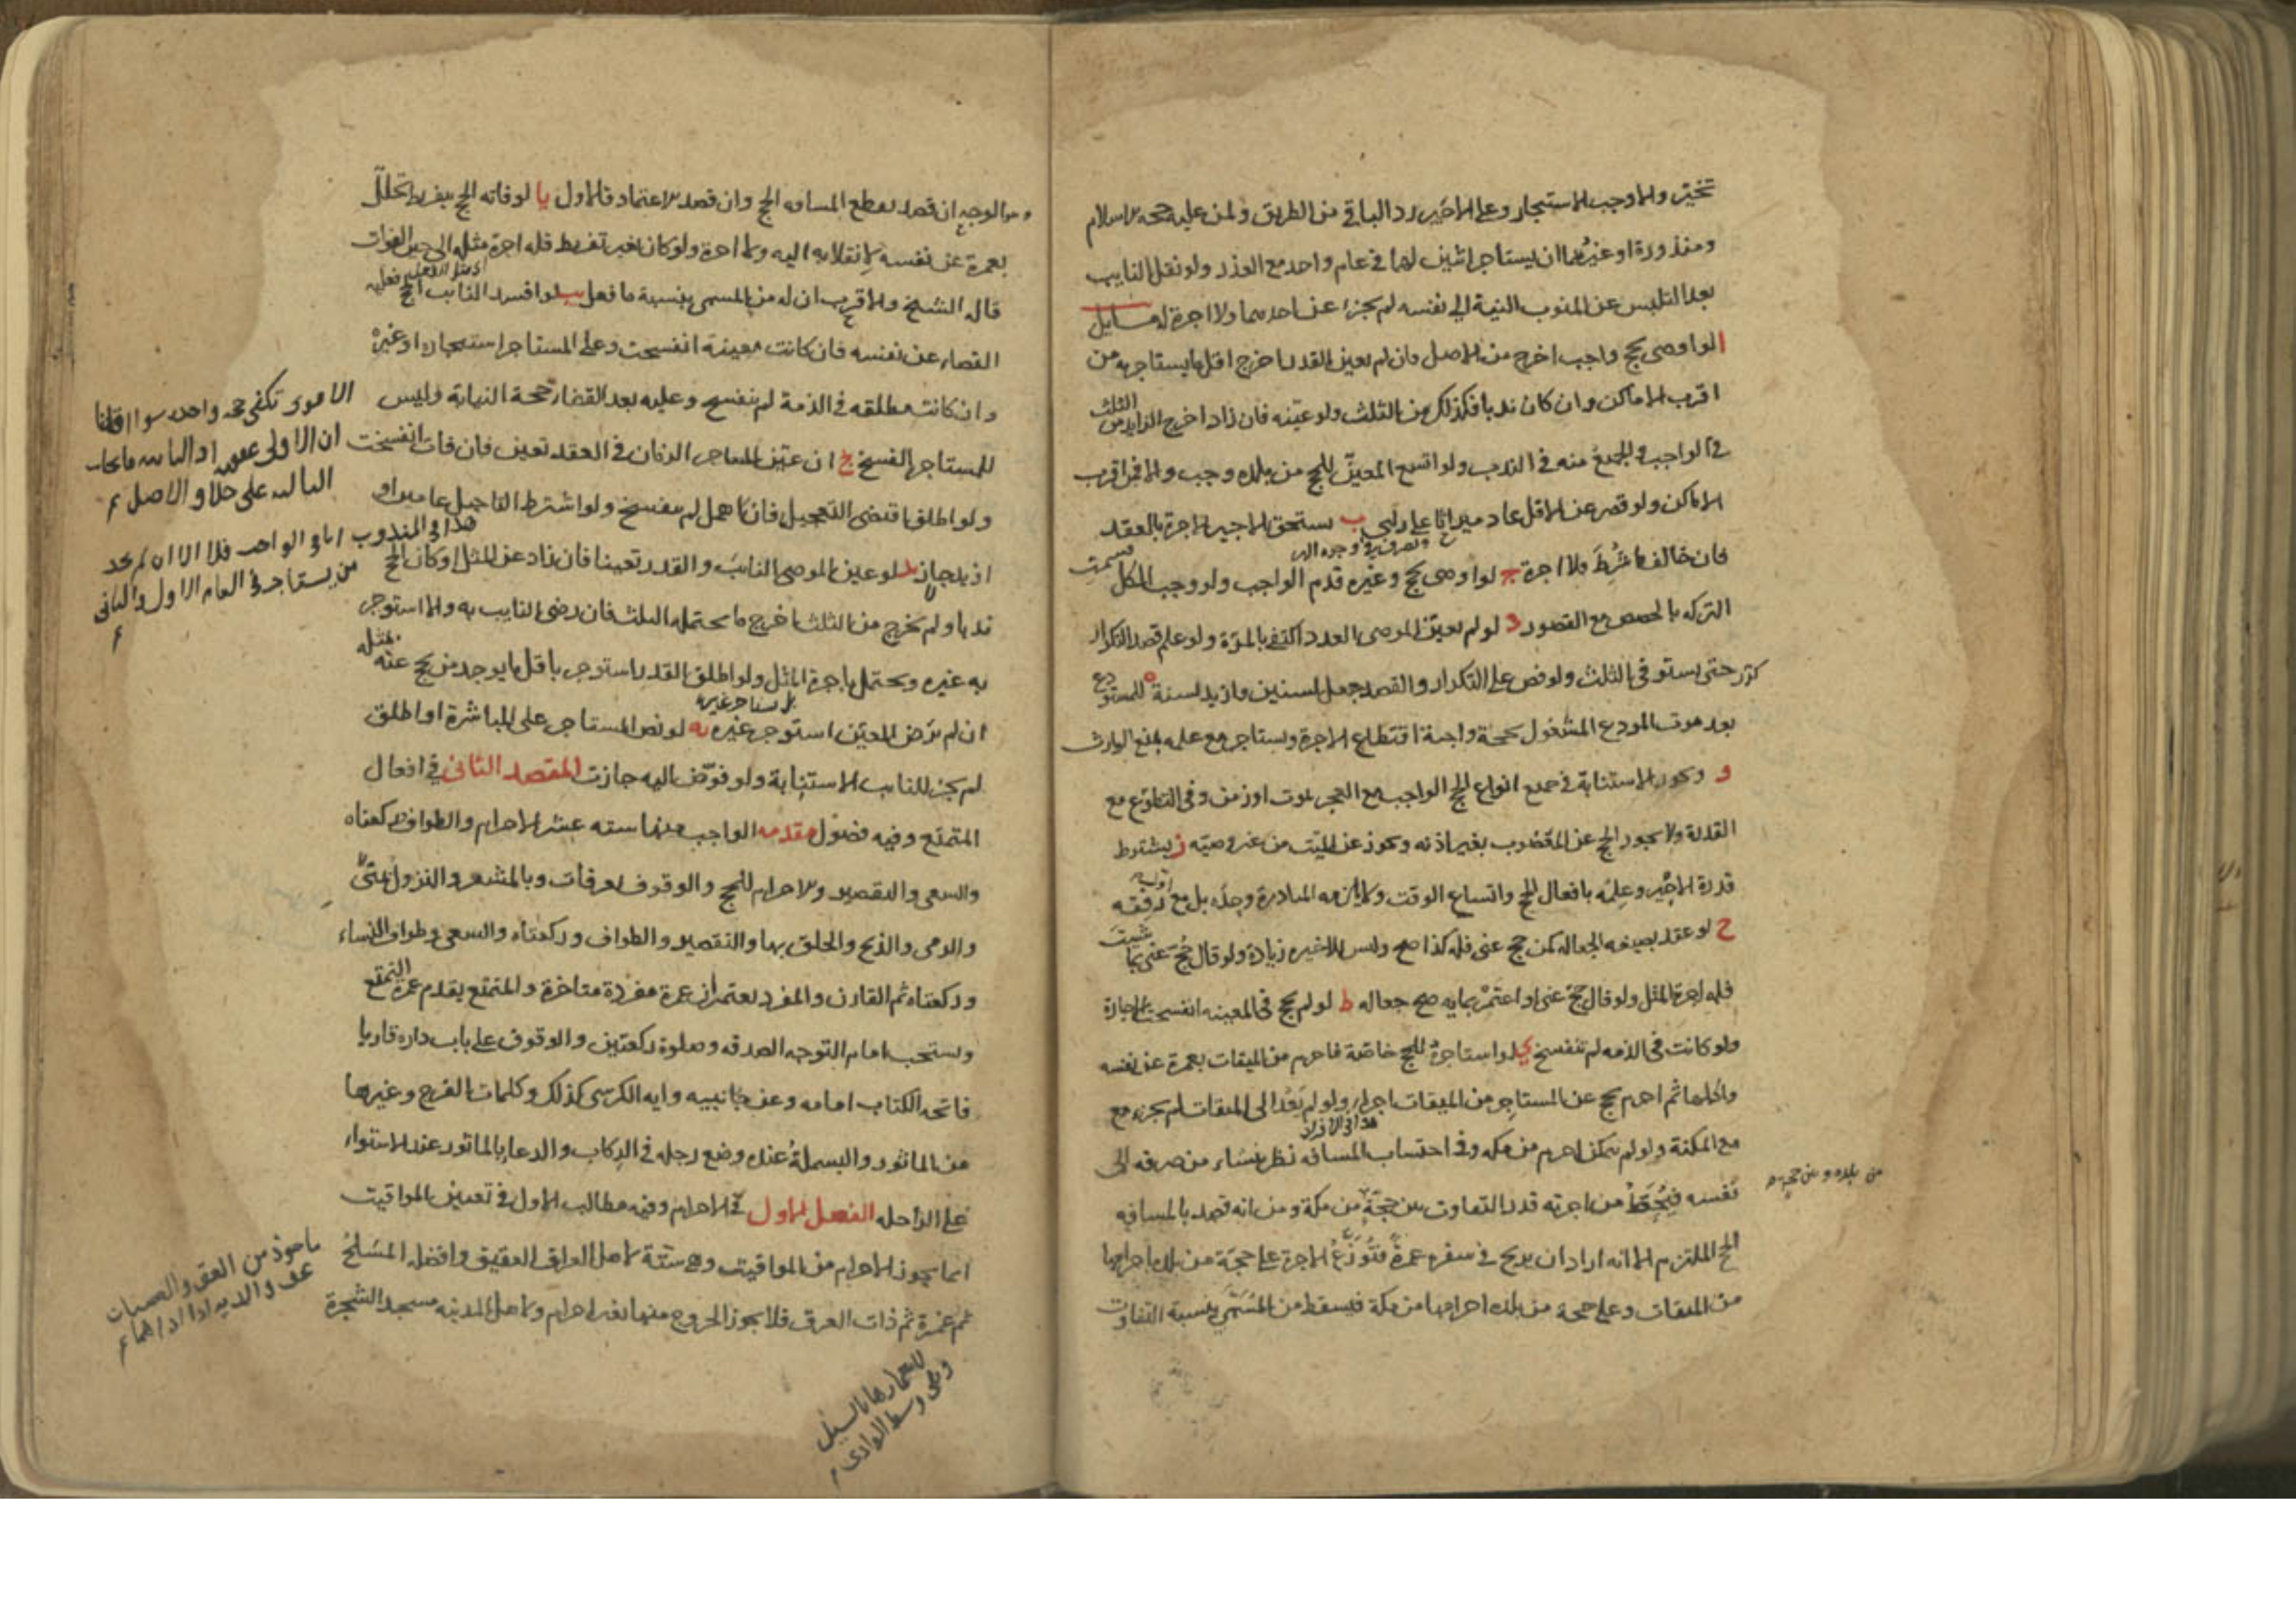 تخيّر والا وجب الاستيجار وعلى الاخير رد الباقي من الطريق ولمن عليه حجه الاسلام
ومنذورة او غيرهما ان يستاجر اثنين لهما في عام واحد مع العذر ولو نقل النايب
بعد التلبس عن المنوب النية الى نفسه لم يجزء عن احدهما ولا اجرة له مسايل
ا لو اوصى بحج واجب اخرج من الاصل فان لم يعين القدر اخرج اقل ما يستاجر به من
اقرب الاماكن وان كان ندبا فكذلك من الثلث ولو عيّنه فان زاد اخرج الزايد من الثلث
في الواجب والجميع منه في الندب ولو اتسع المعيّن للحج من بلده وجب والا فمن اقرب
الاماكن ولو قصر عن الاقل عاد ميراثا على رأى ب يستحق الاجير الاجرة بالعقد
فان خالف ما شُرِطَ فلا اجرة ج لو اوصى بحج وغيره قدم الواجب ولو وجب الكل قسمت
التركه بالحصص مع القصور د لو لم يعيّن الموصى العدد اكتفى بالمرّة ولو علم قصد التكرار
كرّر حتى يستوفى الثلث ولو نص على التكرار والقصد جعل لسنين وازيد لسنة ه للمستودع
بعد موت المودع المشغول بحجة واجبة اقتطاع الاجرة ويستاجر مع علمه بمنع الوارث
و ويجوز الاستنابة في جميع انواع الحج الواجب مع العجز بموت او زمن وفي التطوّع مع
القدرة ولا يجوز الحج عن المغضوب بغير اذنه ويجوز عن الميّت من غير وصيّه ز يشترط
قدرة الاجير وعلمه بافعال الحج واتساع الوقت ولا يلزمه المبادرة وحده بل مع رفقه
ح لو عقد بصيغه الجعاله كمن حج عنى فله كذا صح وليس للاخير زيادة ولو قال حُجّ عنى بما شيت
فله اجرة المثل ولو قال حجّ عنى او اعتمر بمايه صح جعاله ط لو لم يحج في المعينه انفسخت الاجارة
ولو كانت في الذمه لم تنفسخ ي لو استاجره للحج خاصّة فاحرم من الميقات بعمرة عن نفسه
واكملها ثم احرم بحج عن المستاجر من الميقات اجزا ولو لم يَعُد الى الميقات لم يجزه مع
مع المكنة ولو لم يتمكن احرم من مكه وفي احتساب المسافه نظر ينشاء من صرفه الى
نفسه فيُحَطّ من اجرته قدر التفاوت بين حجّةٍ من مكة ومن انه قصد بالمسافه
الحج الملتزم الا انه اراد ان يربح في سفره عمرةً فتُوَزّعُ الاجرة على حجّة من بلده احرامها
من الميقات وعلى حجة من بلده احرامها من مكة فيسقط من المُسَمّى بنسبة التفاوت
من بلده وبين حجه
والوجه ان قصد بقطع المسافه الحج وان قصد الاعتماد فالاول يا لو فاته الحج بتفريط تحلّل
بعمرة عن نفسه لانقلابه اليه ولا اجرة ولو كان بغير تفريط فله اجرة مثله الى حين الفوات
قاله الشيخ والاقرب ان له من المسمى بنسبة ما فعل يب لو افسد النايب الحج فعليه
القضاء عن نفسه فان كانت معينة انفسخت وعلى المستاجر استيجاره او غيره
وان كانت مطلقه في الذمة لم ينفسخ وعليه بعد القضاء حجة النيابة وليس
للمستاجر الفسخ يج ان عيّن الزمان في العقد تعين فان فات انفسخت
ولو اطلق اقتضى التعجيل فان اهمل لم ينفسخ ولو اشترط التاجيل عامين او
ازيد جاز يد لو عين الموصى النايبَ والقدر تعينا فان زاد عن المثل او كان الحج
ندبا ولم يخرج من الثلث اخرج ما يحتمله الثلث فان رضى النايب به والا استوجر
به غيره ويحتمل باجرة المثل ولو اطلق القدر استوجر باقل ما يوجد من يحج عنه بمثله
ان لم يرض المعيّن استوجر غيره يه لو نص المستاجر على المباشرة او اطلق
لم يجز للنايب الاستنابة ولو فوّض اليه جازت المقصد الثاني في افعال
المتمتع وفيه فصول مقدمه الواجب منها سته عشر الاحرام والطواف وركعتاه
والسعى والتقصير والاحرام للحج والوقوف بعرفات وبالمشعر والنزول بمنى
والرمى والذبح والحلق بها والتقصير والطواف وركعتاه والسعى وطواف النساء
وركعتاه ثم القارن والمفرد يعتمران عمرة مفردة متاخرة والمتمتع يقدم عمرة التمتع
ويستحب امام التوجه الصدقه وصلوة ركعتين والوقوف على باب داره قاريا
فاتحه الكتاب امامه وعن جانبيه وايه الكرسى كذلك وكلمات الفرج وغيرها
من الماثور والبسملة عند وضع رجله في الركاب والدعاء بالماثور عند الاستواء
على الراحله الفصل الاول في الاحرام وفيه مطالب الاول في تعيين المواقيت
انما يجوز الاحرام من المواقيت وهى ستّة لاهل العراق العقيق وافضله المسلخ
ثم غمرة ثم ذات العرق فلا يجوز الخروج منها بغير احرام ولاهل المدينه مسجد الشجرة
تكفى حجه واحده سوا قلنا
هذا في المندوب اما في الواجب فلا الا ان لم يجد
من يستاجره في العام الاول والثانى
ماخوذ من العق والعصيان
وهى وسط الوادى